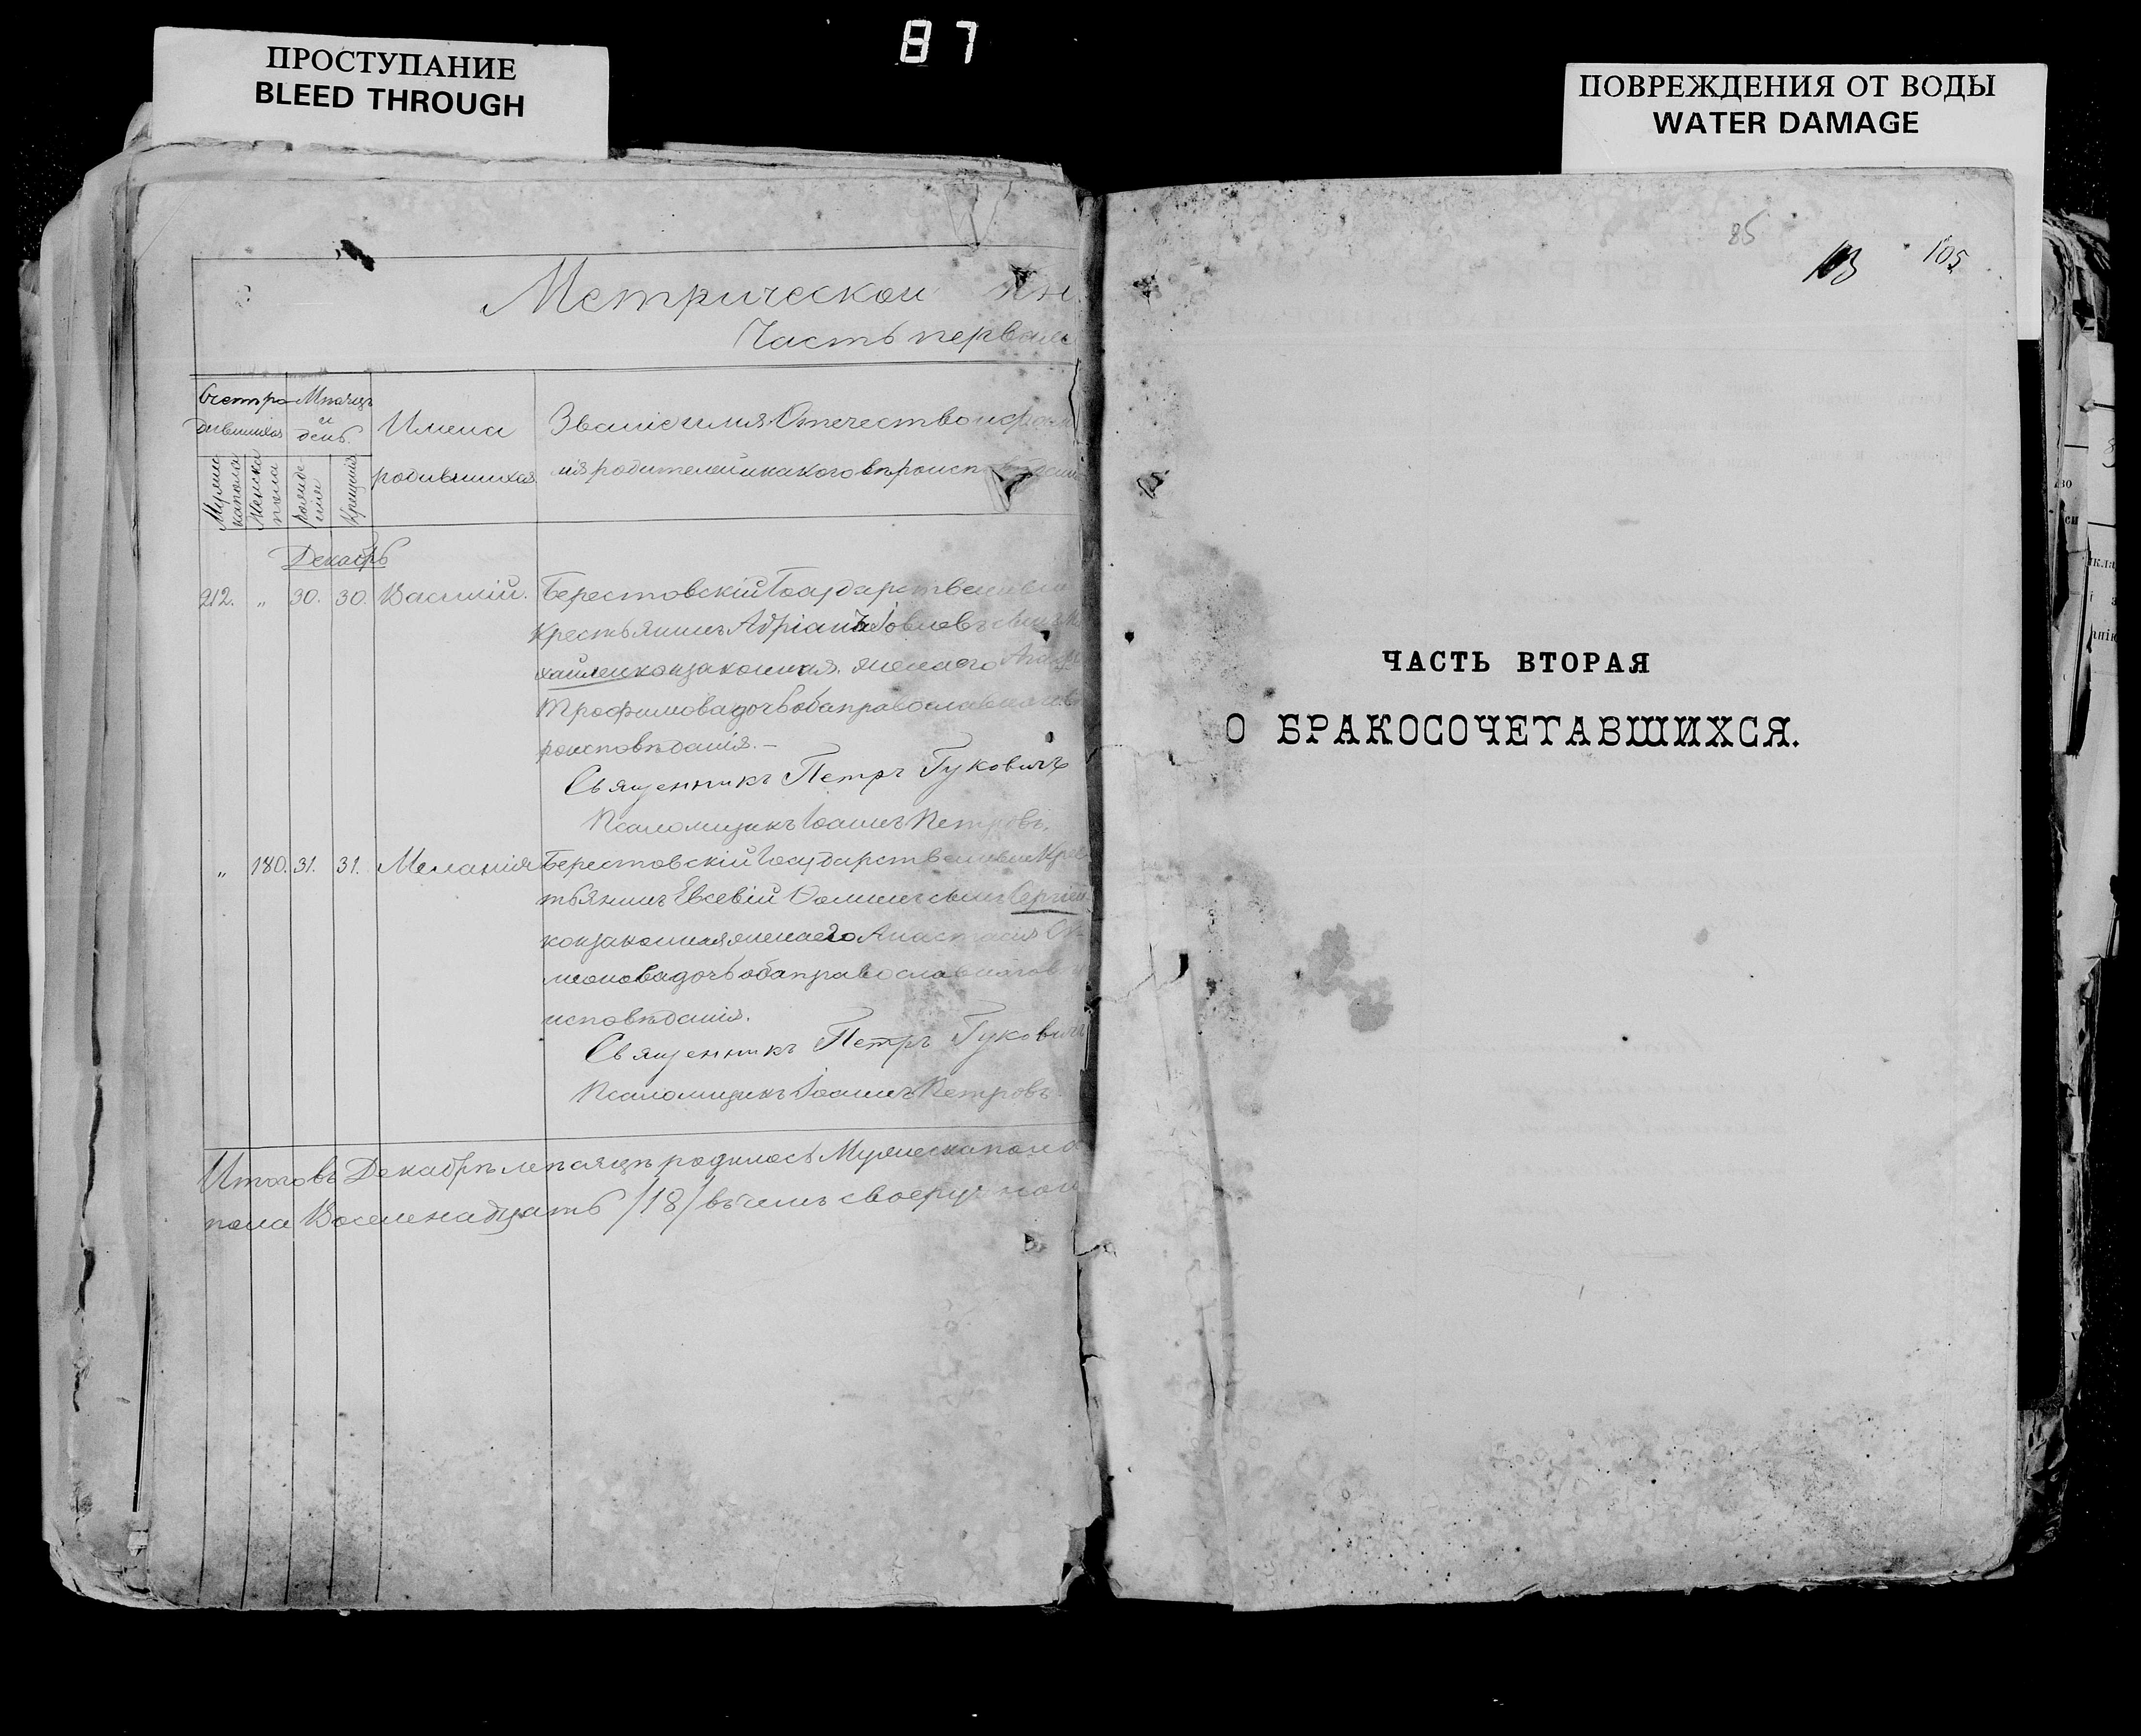 87
ПРОСТУПАНИЕ
BLEED THROUGH
ПОВРЕЖДЕНИЯ ОТ ВОДЫ
WATER DAMAGE
Метрической кн
Часть первая
Счетъ ро- Мѣсяцъ
дившихся и день.
Мужеска пола
Женска пола
Рожденія
Крещенія
Имена
родившихся
Званіе имя Отечество и фами
лія родителей и какого вѣроисповѣданія
Декабрь
212. „ 30. 30. Василій. Берестовскій Государственный
Крестьянинъ Адріанъ Іовлевъ сынъ Ми
хайленко и законная жена его
Трофимова дочь оба православнаго вѣ
роисповѣданія.—
Священникъ Петръ Гуковичъ
Псаломщикъ Іоаннъ Петровъ.
„ 180. 31. 31. Меланія Берестовскій Государственный Крес
тьянинъ Евсевій Ѳоминъ сынъ Сергіен
ко и законная жена его Анастасія Си
меонова дочь оба православнаго вѣ
исповѣданія.
Священникъ Петръ Гуковичъ
Псаломщикъ Іоаннъ Петровъ.
Итого въ Декабрѣ мѣсяцѣ родилось Мужеска пола
пола Восемнадцать /18/ въ чемъ своеручно
85
103 105
ЧАСТЬ ВТОРАЯ
О БРАКОСОЧЕТАВШИХСЯ.